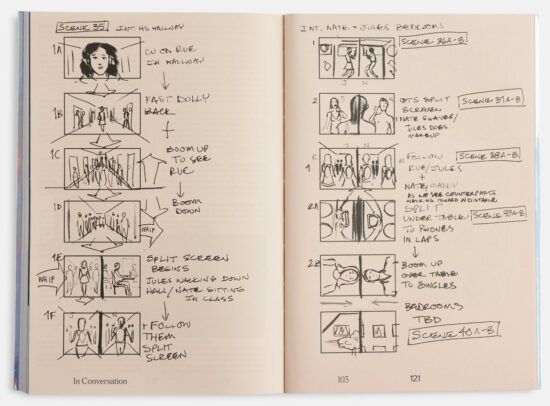 SCENE 35 INT HS HALLWAY
1A
CU ON RUE
IN HALLWAY
1B
FAST DOLLY
BACK
1C
BOOM UP
TO SEE
RUE
1D
BOOM
DOWN
WHIP
WHIP
1E
SPLIT SCREEN
BEGINS
JULES WALKING DOWN
HALL/NATE SITTING
IN CLASS
1F
FOLLOW
THEM
SPLIT
SCREEN
In Conversation
INT. NATE + JULES BEDROOMS
1
SCENE 36A-B
J N
2
SPLIT
SCREEN
NATE SHAVES/
JULES DOES
MAKEUP
SCENE 37A-B
J N
FOLLOW
RUE/JULES
+
NATE/MADDY
AS WE SEE COUNTERPARTS
WALKING TOWARD IN DISTANCE
SCENE 38A-B
2A
SPLIT
UNDER TABLE/
TO PHONES
IN LAPS
SCENE 39A-B
2B
BOOM UP
OVER TABLE
TO SINGLES
BEDROOMS
TBD
SCENE 40A-B
103
121